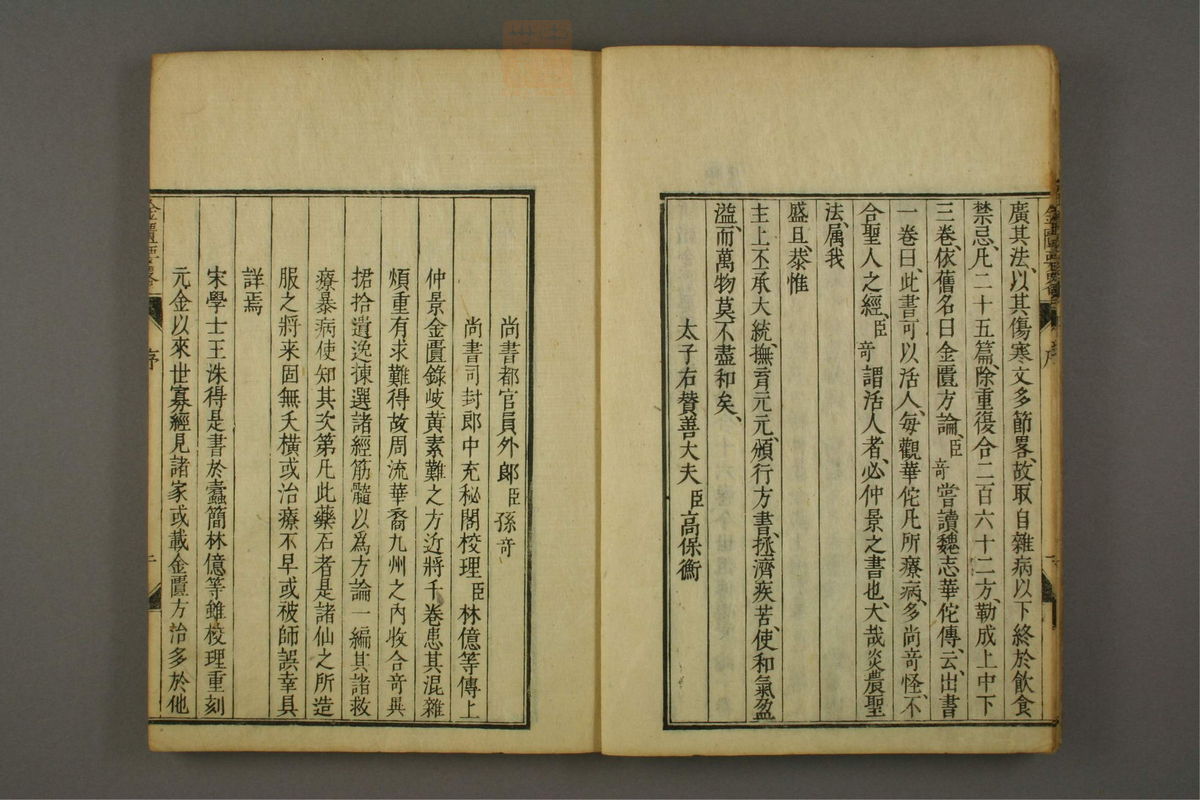 廣其法、以其傷寒文多節畧、故取自雜病以下終於飲食
禁忌、凡二十五篇、除重復合二百六十二方、勒成上中下
三卷、依舊名曰金匱方論、臣奇嘗讀魏志華佗傳、云、出書
一卷曰、此書可以活人、每觀華佗凡所療病、多尚奇怪、不
合聖人之經、臣奇謂活人者、必仲景之書也、大哉炎農聖
法、属我
盛旦、恭惟
主上丕承大統、撫育元元、頒行方書、拯濟疾苦、使和氣盈
溢、而萬物莫、不盡和矣、
太子右贊善大夫臣高保衡
尚書都官員外郎臣孫奇
尚書司封郎中充秘閣校理臣林億等傳上
仲景金匱錄岐黃素難之方近將千卷患其混雜
煩重有求難得故周流華裔九州之內收合奇異
捃拾遺逸揀選諸經筋髓以爲方論一編其諸救
療暴病使知其次第凡此藥石者是諸仙之所造
服之將来固無夭橫或治療不早或被師誤幸具
詳焉
宋學士王洙得是書於蠹簡林億等雖校理重刻
元金以來世寡經見諸家或載金匱方治多於他
金匱要畧
序
二